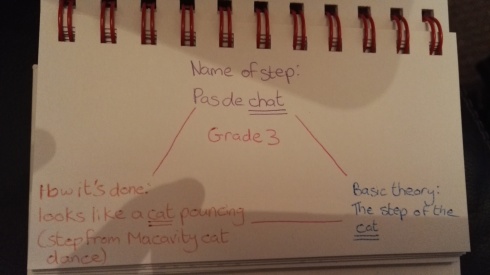 Name of step:
Pas de chat
Grade 3
How it's done:
looks like a cat pouncing
(step from Macavity cat
dance)
Basic theory:
The step of the
cat